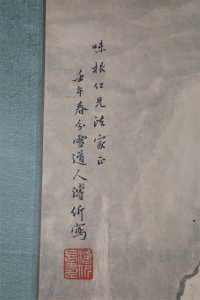 味根仁兄法家正
壬午春分雪道人溥伒寫